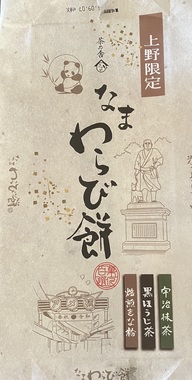 上野限定
茶の香
なま
わらび餅
宇治抹茶
黒ほうじ茶
焙煎きな粉
わらび餅